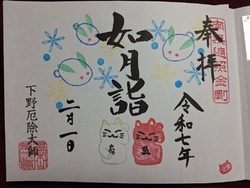 奉拝
令和七年
如月詣
二月一日
下野厄除大師